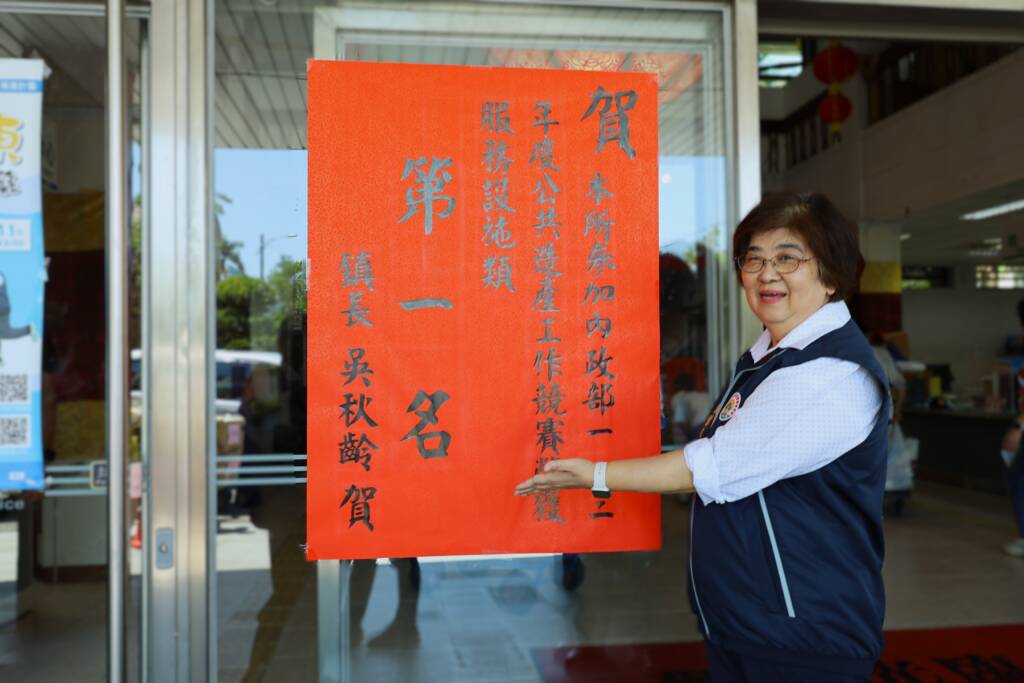 賀 本所參加內政部一 二
年度公共造產工作競賽榮獲
服務設施類
第一名
鎮長 吳秋齡 賀